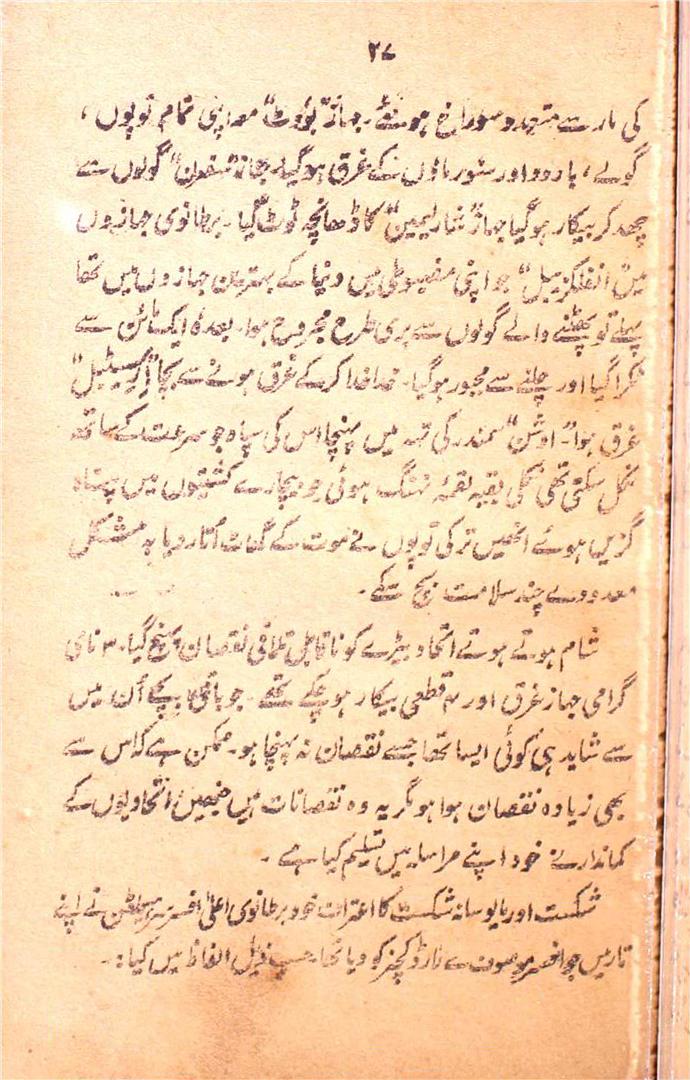 ۲۷
کی مار سے متعدد سوراخ ہوگئے۔ جہاز "بووٹ" معہ اپنی تمام توپوں،
گولے، بارود اور سورماؤں کے غرق ہوگیا۔ جہاز "سفرن" گولوں سے
چھد کر بیکار ہوگیا جہاز "شارلیمین" کا ڈھانچہ ٹوٹ گیا۔ برطانوی جہازوں
میں "انفلکزیبل" جو اپنی مضبوطی میں دنیا کے بہترین جہازوں میں تھا
پہلے تو پھٹنے والے گولوں سے بری طرح مجروح ہوا۔ بعدہٗ ایک مائن سے
ٹکرا گیا اور چلنے سے مجبور ہوگیا۔ خدا خدا کرکے غرق ہونے سے بچا "اِرِسیٹبل"
غرق ہوا۔ "اوشن" سمندر کی تہہ میں پہنچا اس کی سپاہ جو سرعت کے ساتھ
نکل سکتی تھی نکلی بقیہ لقمۂ نہنگ ہوئی جو بیچارے کشتیوں میں پناہ
گزیں ہوئے انھیں ترکی توپوں نے موت کے گھاٹ اُتار دیا بہ مشکل
معدودے چند سلامت بچ سکے۔
شام ہوتے ہوتے اتحاد بیڑے کو ناقابل تلافی نقصان پہنچ گیا۔ ۳ نامی
گرامی جہاز غرق اور ۴ قطعی بیکار ہوچکے تھے۔ جو باقی بچے اُن میں
سے شاید ہی کوئی ایسا تھا جسے نقصان نہ پہنچا ہو۔ ممکن ہے کہ اس سے
بھی زیادہ نقصان ہوا ہو مگر یہ وہ نقصانات ہیں جنھیں اتحادیوں کے
کماندار نے خود اپنے مراسلہ میں تسلیم کیا ہے۔
شکست اور مایوسانہ شکست کا اعتراف خود برطانوی اعلیٰ افسر سر ہملٹن نے اپنے
تار میں جو افسر موصوف نے لارڈ کچنر کو دیا تھا۔ حسب ذیل الفاظ میں کیا:۔